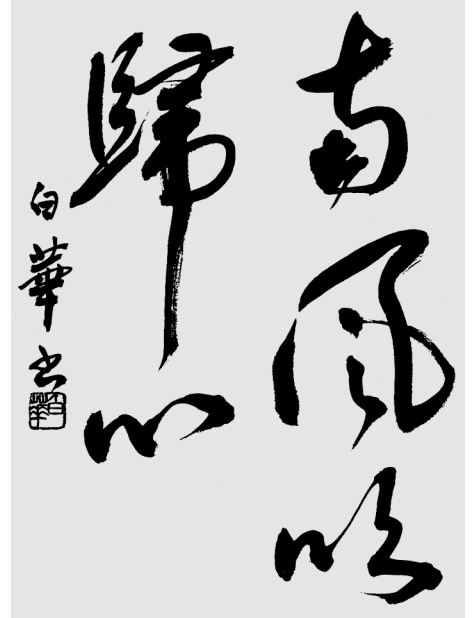 南風吹
歸心
白華书